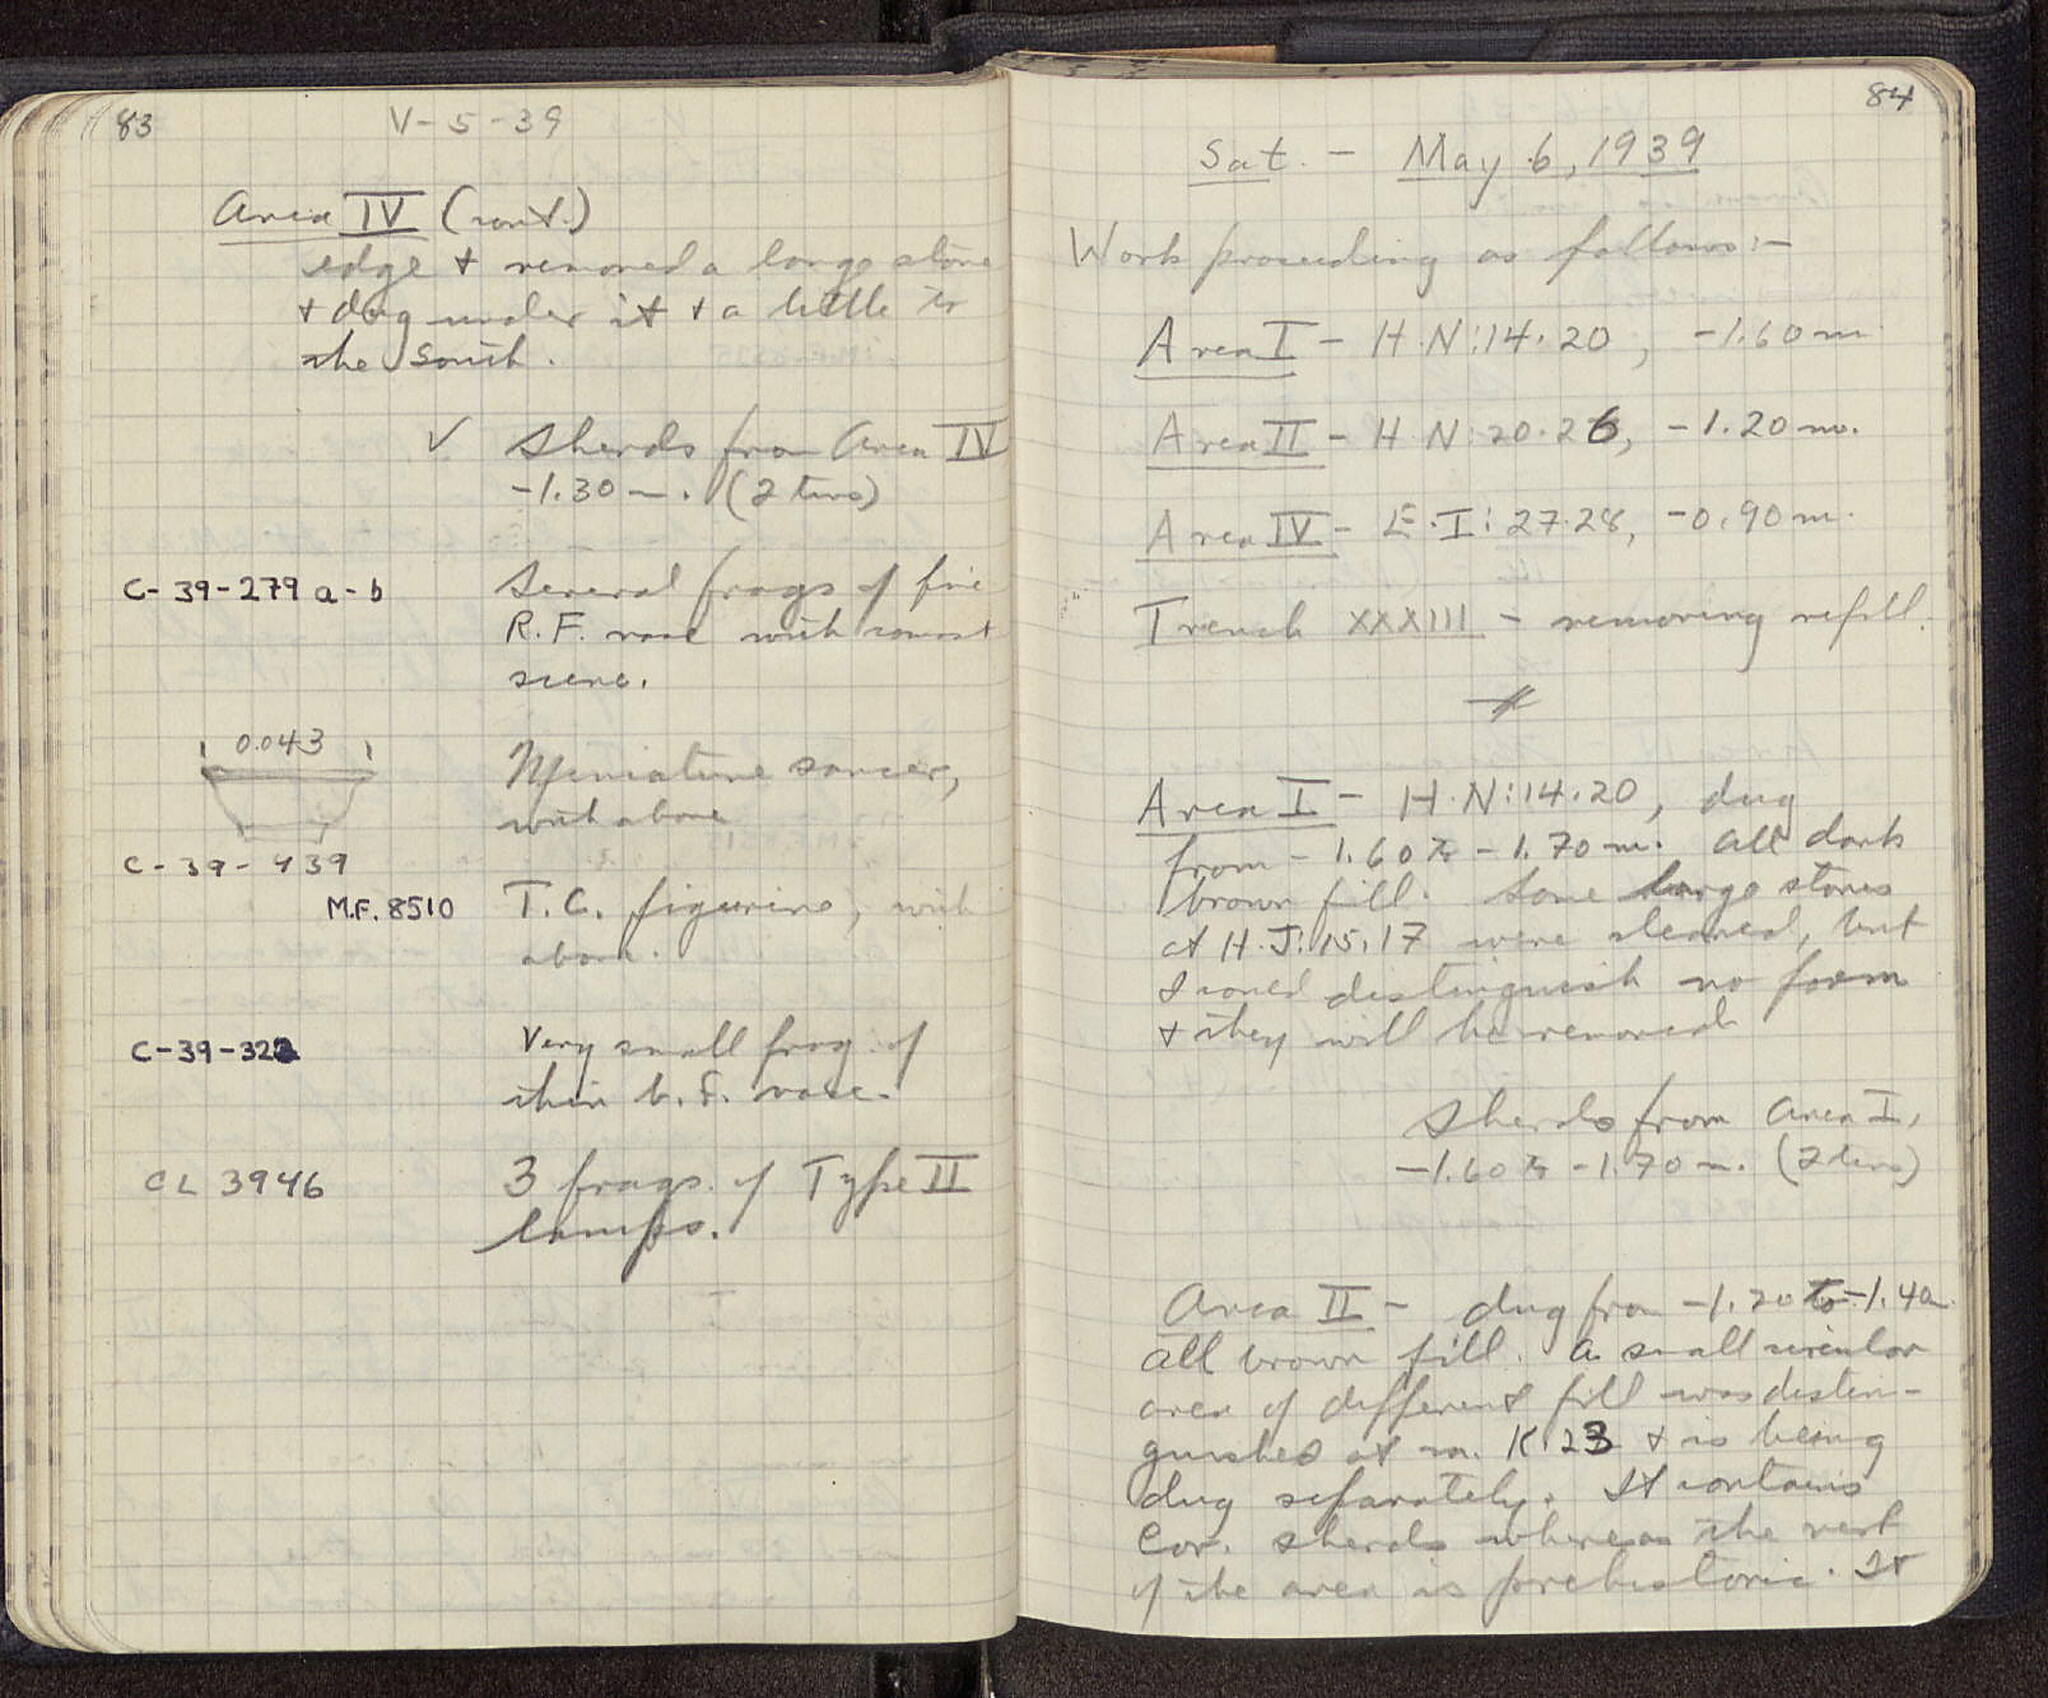 83
V-5-39
Area IV (cont.)
edge + removed a large stone
+ dug under it + a little to
the South.
✓ Sherds from Area IV
-1.30 m. (2 tins)
C-39-279 a-b
Several frags of fine
R.F. vase with comast
scene.
0.043
Miniature saucer,
with above
C-39-439
M.F. 8510
T.C. figurine, with
above.
C-39-322
Very small frag. of
thin b.f. vase.
CL 3946
3 frags. of Type II
lamps.
84
Sat. - May 6, 1939
Work proceeding as follows:-
Area I - H-N:14-20, -1.60 m
Area II - H-N:20-26, -1.20 m.
Area IV - E-I:27-28, -0.90 m.
Trench XXXIII - removing refill.
Area I - H-N:14-20, dug
from -1.60 to -1.70 m. All dark
brown fill. Some large stones
at H-J:15-17 were cleaned, but
I could distinguish no form
+ they will be removed
Sherds from Area I,
-1.60 to -1.70 m. (2 tins)
Area II - dug from -1.20 to -1.40
All brown fill. A small circular
area of different fill was distin-
guished at m. K:23 + is being
dug separately. It contains
Cor. sherds whereas the rest
of the area is prehistoric. It